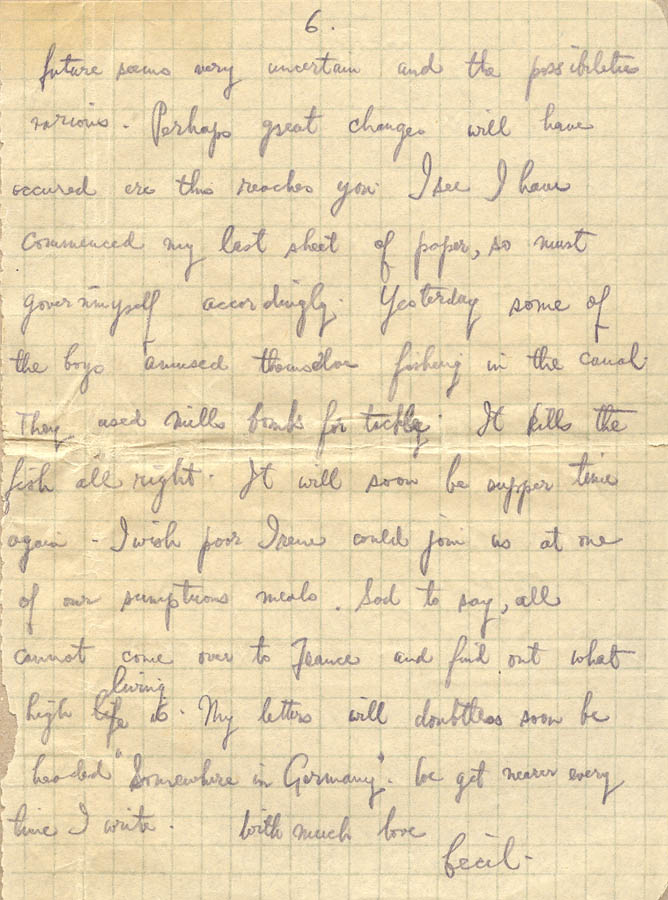 6.
future seems very uncertain and the possibilities
various. Perhaps great changes will have
occured ere this reaches you. I see I have
commenced my last sheet of paper, so must
govern myself accordingly. Yesterday some of
the boys amused themselves fishing in the canal.
They used mills bombs for tackle. It kills the
fish all right. It will soon be supper time
again - I wish poor Irene could join us at one
of our sumptious meals. Sad to say, all
cannot come over to France and find out what
living
high life is. My letters will doubtless soon be
headed "Somewhere in Germany". We get nearer every
time I write. With much love
Cecil.